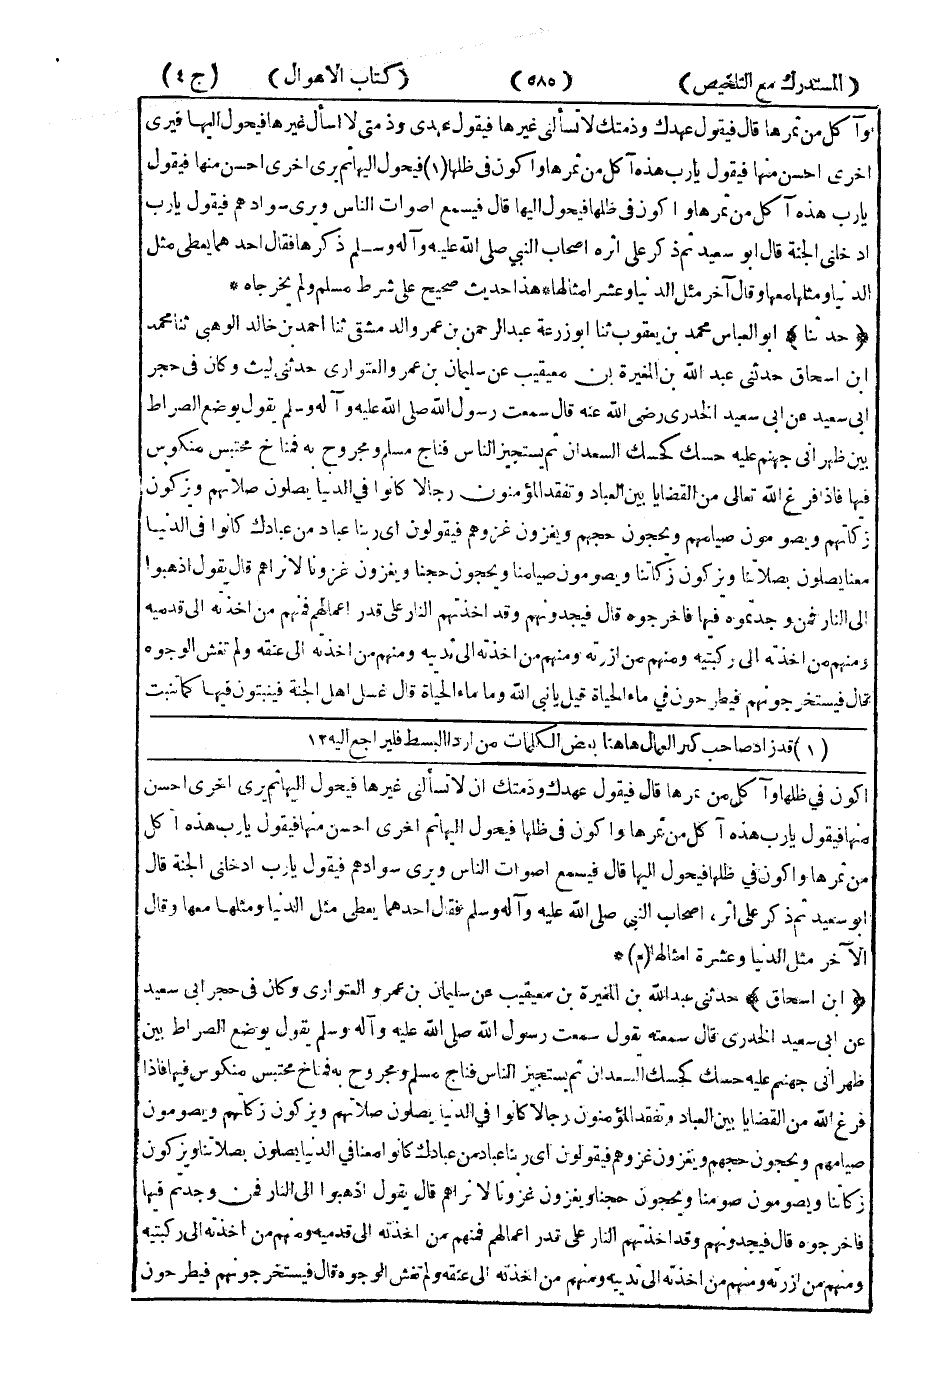 (المستدرك مع التلخيص) (٥٨٥) (كتاب الاهوال) (ج ٤)
وآكل من ثمرها قال فيقول عهدك وذمتك لا تسألنى غيرها فيقول عهدى وذمتى لا اسأل غيرها فيحول اليها فيرى
اخرى احسن منها فيقول يارب هذه آكل من ثمرها واكون فى ظلها (١) فيحول اليها ثم يرى اخرى احسن منها فيقول
يارب هذه آكل من ثمرها واكون فى ظلها فيحول اليها قال فيسمع اصوات الناس ويرى سوادهم فيقول يارب
ادخلنى الجنة قال ابو سعيد ثم ذكر على اثره اصحاب النبي صلى الله عليه وآله وسلم ذكرها فقال احدهما يعطى مثل
الدنيا ومثلها معها وقال آخر مثل الدنيا وعشر امثالها * هذا حديث صحيح على شرط مسلم ولم يخرجاه *
﴿ حدثنا ﴾ ابو العباس محمد بن يعقوب ثنا ابوزرعة عبدالرحمن بن عمرو الدمشقى ثنا احمد بن خالد الوهبى ثنا محمد
ابن اسحاق حدثنى عبد الله بن المغيرة بن معيقيب عن سليمان بن عمرو العتوارى حدثنى ليث وكان فى حجر
ابى سعيد عن ابى سعيد الخدرى رضى الله عنه قال سمعت رسول الله صلى الله عليه وآله وسلم يقول يوضع الصراط
بين ظهرانى جهنم عليه حسك كحسك السعدان ثم يستجيز الناس فناج مسلم ومجروح به فمناخ محتبس منكوس
فيها فاذا فرغ الله تعالى من القضايا بين العباد وتفقد المؤمنون رجالا كانوا فى الدنيا يصلون صلاتهم ويزكون
زكاتهم ويصومون صيامهم ويحجون حجهم ويغزون غزوهم فيقولون اى ربنا عباد من عبادك كانوا فى الدنيا
معنا يصلون بصلاتنا ويزكون زكاتنا ويصومون صيامنا ويحجون حجنا ويغزون غزونا لا نراهم قال يقول اذهبوا
الى النار فمن وجدتموه فيها فاخرجوه قال فيجدونهم وقد اخذتهم النار على قدر اعمالهم فمنهم من اخذته الى قدميه
ومنهم من اخذته الى ركبتيه ومنهم من ازرته ومنهم من اخذته الى ثدييه ومنهم من اخذته الى عنقه ولم تغش الوجوه
قال فيستخرجونهم فيطرحون في ماء الحياة قيل يانبى الله وما ماء الحياة قال غسل اهل الجنة فينبتون فيها كما تنبت
(١) قد زاد صاحب كنز العمال هاهنا بعض الكلمات من اراد البسط فليراجع اليه ١٢
اكون في ظلها وآكل من ثمرها قال فيقول عهدك وذمتك ان لا تسألنى غيرها فيحول اليها ثم يرى اخرى احسن
منها فيقول يارب هذه آكل من ثمرها واكون فى ظلها فيحول اليها ثم اخرى احسن منها فيقول يارب هذه آكل
من ثمرها واكون في ظلها فيحول اليها قال فيسمع اصوات الناس ويرى سوادهم فيقول يارب ادخلنى الجنة قال
ابو سعيد ثم ذكر على اثره اصحاب النبي صلى الله عليه وآله وسلم فقال احدهما يعطى مثل الدنيا ومثلها معها وقال
الآخر مثل الدنيا وعشرة امثالها (م) *
﴿ ابن اسحاق ﴾ حدثنى عبدالله بن المغيرة بن معيقيب عن سليمان بن عمرو العتوارى وكان فى حجر ابى سعيد
عن ابى سعيد الخدرى قال سمعته يقول سمعت رسول الله صلى الله عليه وآله وسلم يقول يوضع الصراط بين
ظهرانى جهنم عليه حسك كحسك السعدان ثم يستجيز الناس فناج مسلم ومجروح به فمناخ محتبس منكوس فيها فاذا
فرغ الله من القضايا بين العباد وتفقد المؤمنون رجالا كانوا في الدنيا يصلون صلاتهم ويزكون زكاتهم ويصومون
صيامهم ويحجون حجهم ويغزون غزوهم فيقولون اى ربنا عباد من عبادك كانوا معنا في الدنيا يصلون بصلاتنا ويزكون
زكاتنا ويصومون صومنا ويحجون حجنا ويغزون غزونا لا نراهم قال يقول اذهبوا الى النار فمن وجدتم فيها
فاخرجوه قال فيجدونهم وقد اخذتهم النار على قدر اعمالهم فمنهم من اخذته الى قدميه ومنهم من اخذته الى ركبتيه
ومنهم من ازرته ومنهم من اخذته الى ثدييه ومنهم من اخذته الى عنقه ولم تغش الوجوه قال فيستخرجونهم فيطرحون